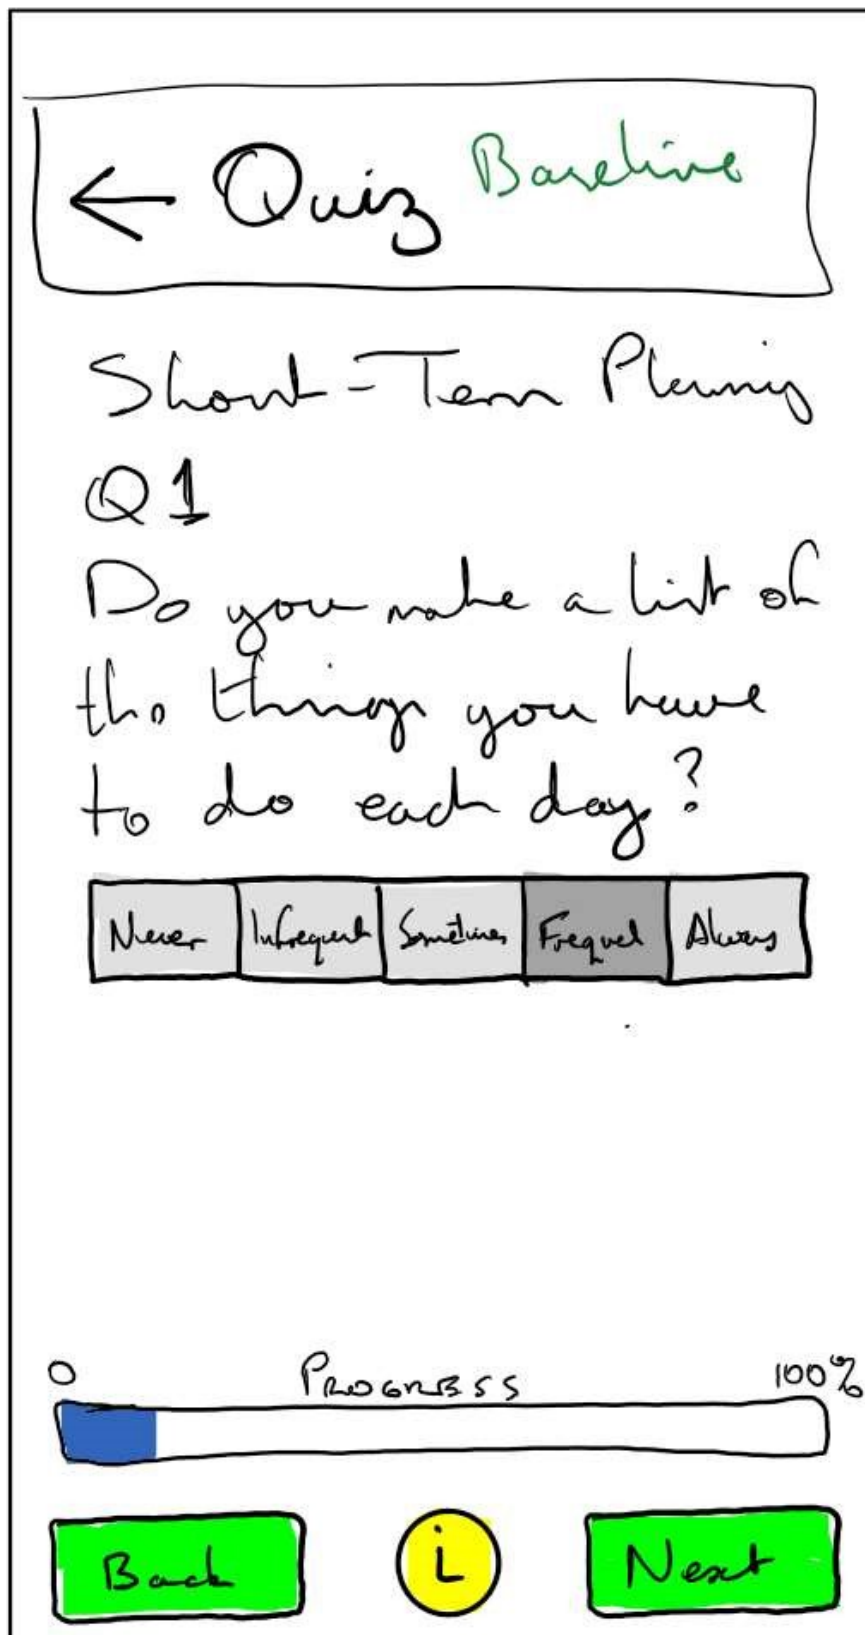 ← Quiz Baseline
Short-Term Planning
Q1
Do you make a list of
the things you have
to do each day?
Never Infrequent Sometimes Frequet Always
0 PROGRESS 100%
Back i Next